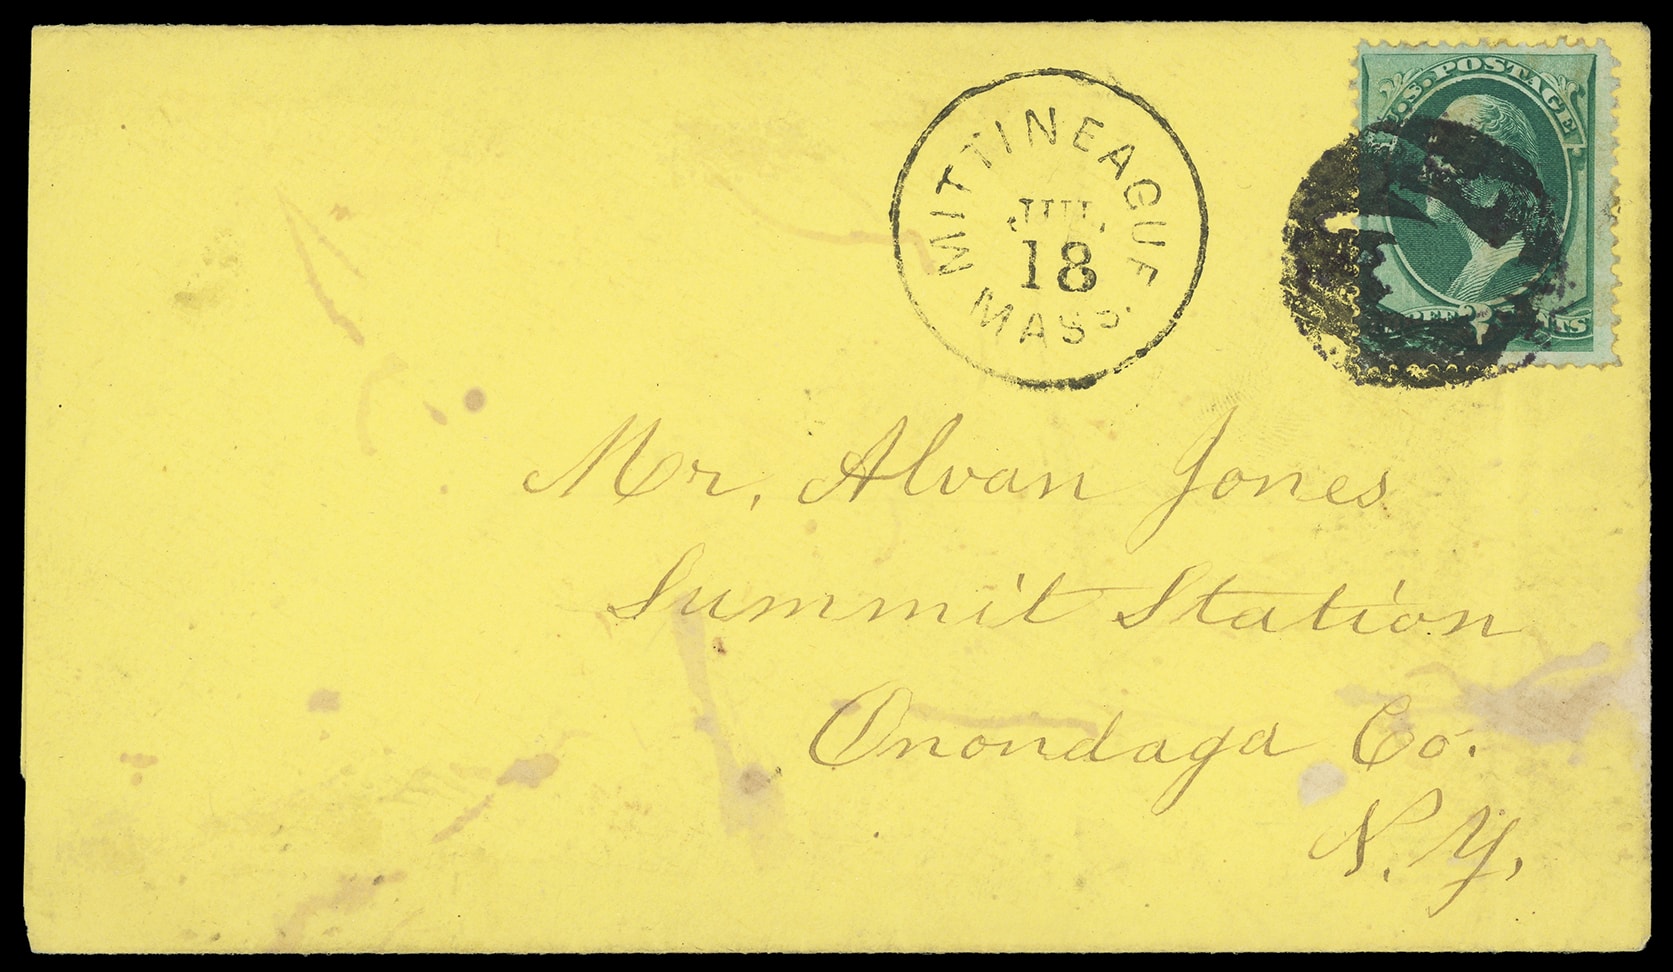 U.S. POSTAGE
MITTINEAGUE
JUL
18
MASS.
CENTS
Mr. Alvan Jones
Summit Station
Onondaga Co.
N.Y.